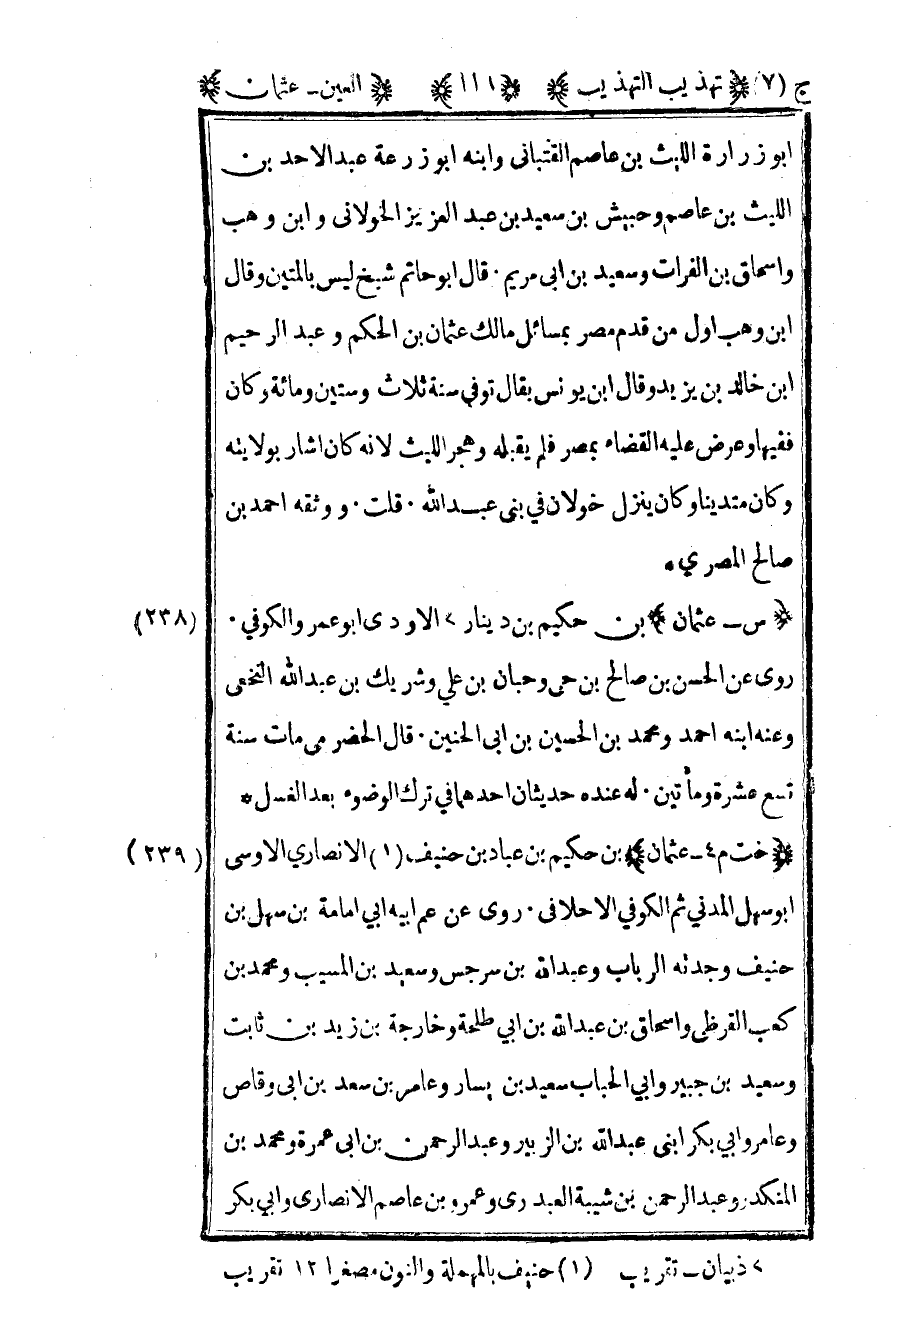 ج (٧) ﴿ تهذيب التهذيب ﴾ ﴿ ١١١ ﴾ ﴿ العين ـ عثمان ﴾
ابو زرارة الليث بن عاصم القتبانى وابنه ابو زرعة عبد الاحد بن
الليث بن عاصم وحبيش بن سعيد بن عبد العزيز الخولانى وابن وهب
واسحاق بن الفرات وسعيد بن ابى مريم ٠ قال ابو حاتم شيخ ليس بالمتين وقال
ابن وهب اول من قدم مصر بمسائل مالك عثمان بن الحكم وعبد الرحيم
ابن خالد بن يزيد وقال ابن يونس يقال توفي سنة ثلاث وستين ومائة وكان
فقيها وعرض عليه القضاء بمصر فلم يقبله وهجر الليث لانه كان اشار بولايته
وكان متدينا وكان ينزل خولان في بنى عبد الله ٠ قلت ٠ ووثقه احمد بن
صالح المصري *
﴿ س ـ عثمان ﴾ بن حكيم بن دينار > الاودى ابو عمر والكوفي ٠ (٢٣٨)
روى عن الحسن بن صالح بن حى وحبان بن علي وشريك بن عبد الله النخعى
وعنه ابنه احمد ومحمد بن الحسين بن ابى الحنين ٠ قال الحضرمى مات سنة
تسع عشرة ومأتين ٠ له عنده حديثان احدهما في ترك الوضوء بعد الغسل *
﴿ خت م ٤ ـ عثمان ﴾ بن حكيم بن عباد بن حنيف (١) الانصاري الاوسى (٢٣٩)
ابو سهل المدني ثم الكوفي الاحلافى ٠ روى عن عم ابيه ابي امامة بن سهل بن
حنيف وجدته الرباب وعبد الله بن سرجس وسعيد بن المسيب ومحمد بن
كعب القرظى واسحاق بن عبد الله بن ابي طلحة وخارجة بن زيد بن ثابت
وسعيد بن جبير وابي الحباب سعيد بن يسار وعامر بن سعد بن ابى وقاص
وعامر وابي بكر ابنى عبد الله بن الزبير وعبد الرحمن بن ابى عمرة ومحمد بن
المنكدر وعبد الرحمن بن شيبة العبدرى وعمرو بن عاصم الانصارى وابي بكر
> ذبيان ـ تقريب (١) حنيف بالمهملة والنون مصغرا ١٢ تقريب